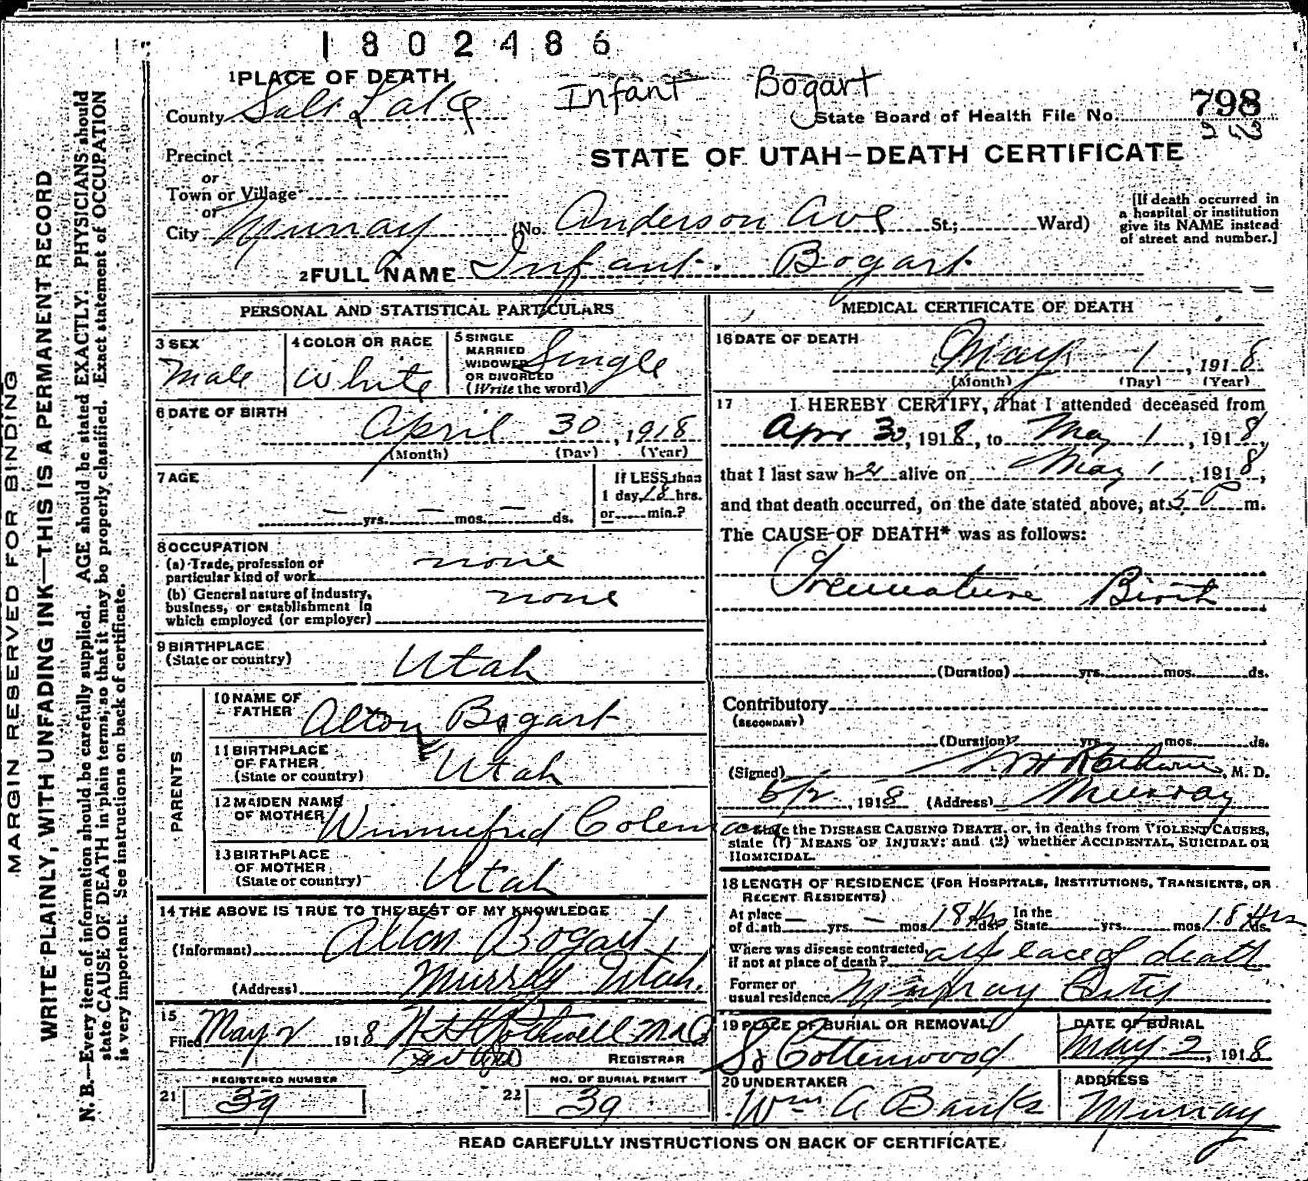 1802486
1 PLACE OF DEATH
Infant Bogart
County Salt Lake
State Board of Health File No. 798
Precinct
or
Town or Village
or
STATE OF UTAH—DEATH CERTIFICATE
City Murray (No. Anderson Ave St.; Ward)
[If death occurred in
a hospital or institution
give its NAME instead
of street and number.]
2 FULL NAME Infant Bogart
PERSONAL AND STATISTICAL PARTICULARS
3 SEX
Male
4 COLOR OR RACE
White
5 SINGLE
MARRIED
WIDOWED
OR DIVORCED
(Write the word)
Single
6 DATE OF BIRTH
April 30, 1918
(Month) (Day) (Year)
7 AGE
— yrs. — mos. — ds.
If LESS than
1 day, 18 hrs.
or min.?
8 OCCUPATION
(a) Trade, profession or
particular kind of work none
(b) General nature of industry,
business, or establishment in
which employed (or employer) none
9 BIRTHPLACE
(State or country) Utah
PARENTS
10 NAME OF
FATHER Alton Bogart
11 BIRTHPLACE
OF FATHER
(State or country) Utah
12 MAIDEN NAME
OF MOTHER Winnifred Coleman
13 BIRTHPLACE
OF MOTHER
(State or country) Utah
14 THE ABOVE IS TRUE TO THE BEST OF MY KNOWLEDGE
(Informant) Alton Bogart
(Address) Murray Utah.
15
Filed May 2 1918
REGISTRAR
REGISTERED NUMBER
21 39
NO. OF BURIAL PERMIT
22 39
MEDICAL CERTIFICATE OF DEATH
16 DATE OF DEATH
May 1, 1918
(Month) (Day) (Year)
17 I HEREBY CERTIFY, That I attended deceased from
Apr 30, 1918, to May 1, 1918,
that I last saw h alive on May 1, 1918,
and that death occurred, on the date stated above, at 5 P m.
The CAUSE OF DEATH* was as follows:
Premature Birth
(Duration) yrs. mos. ds.
Contributory
(SECONDARY)
(Duration) yrs. mos. ds.
(Signed) M. D.
5/2, 1918 (Address) Murray
*State the DISEASE CAUSING DEATH, or, in deaths from VIOLENT CAUSES,
state (1) MEANS OF INJURY; and (2) whether ACCIDENTAL, SUICIDAL OR
HOMICIDAL.
18 LENGTH OF RESIDENCE (FOR HOSPITALS, INSTITUTIONS, TRANSIENTS, OR
RECENT RESIDENTS)
At place
of death — yrs. — mos. 18 Hrs ds. In the
State yrs. mos. 18 Hrs ds.
Where was disease contracted,
if not at place of death? at place of death
Former or
usual residence Murray City
19 PLACE OF BURIAL OR REMOVAL
So Cottonwood
DATE OF BURIAL
May 2, 1918
20 UNDERTAKER
Wm A Banks
ADDRESS
Murray
READ CAREFULLY INSTRUCTIONS ON BACK OF CERTIFICATE
MARGIN RESERVED FOR BINDING
WRITE PLAINLY, WITH UNFADING INK—THIS IS A PERMANENT RECORD
N. B.—Every item of information should be carefully supplied. AGE should be stated EXACTLY. PHYSICIANS should
state CAUSE OF DEATH in plain terms, so that it may be properly classified. Exact statement of OCCUPATION
is very important. See instructions on back of certificate.